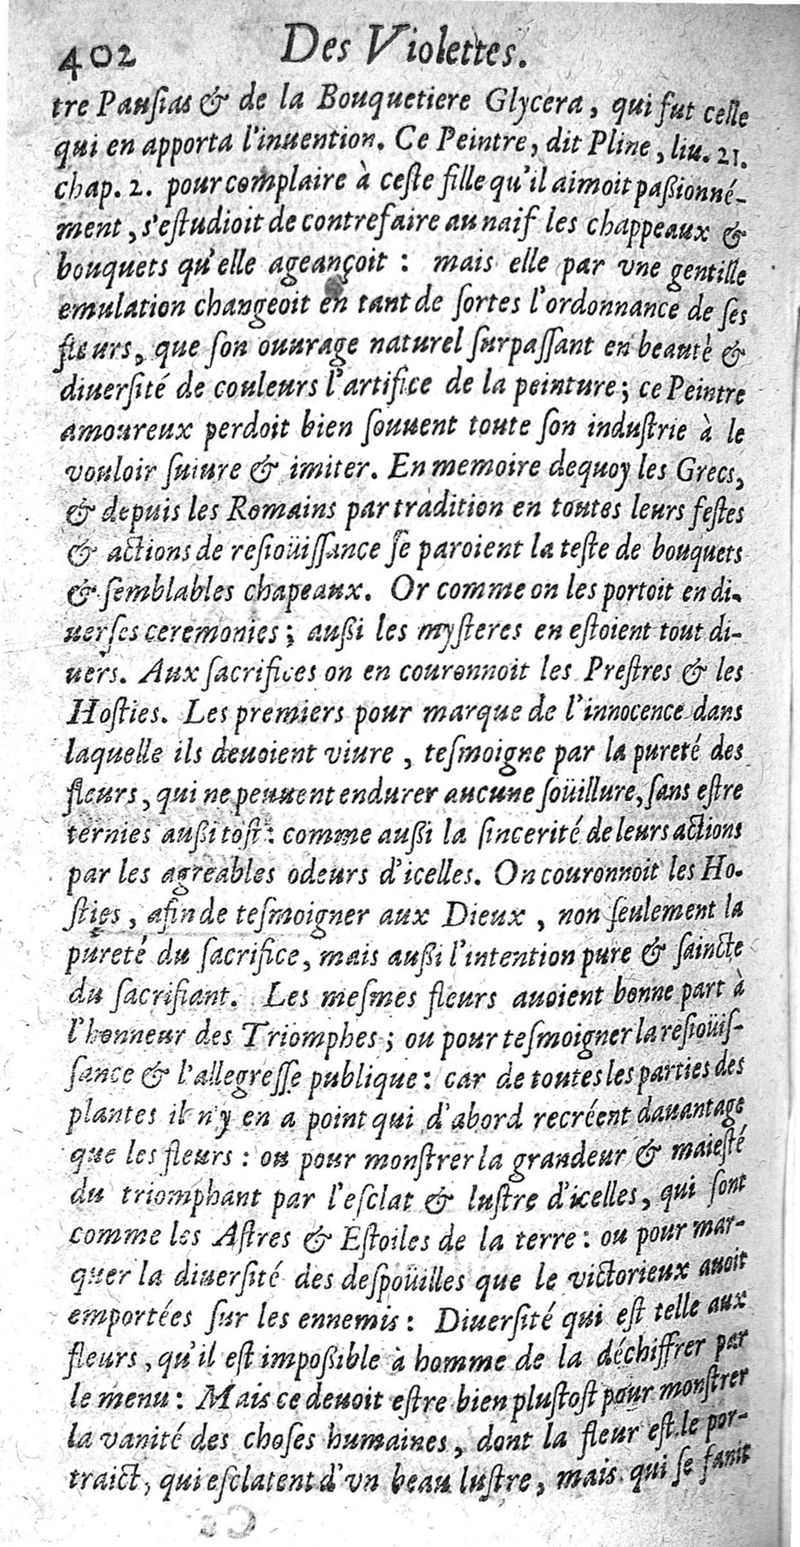 402 Des Violettes.
tre Pausias & de la Bouquetiere Glycera, qui fut celle
qui en apporta l'inuention. Ce Peintre, dit Pline, liu. 21.
chap. 2. pour complaire à ceſte fille qu'il aimoit paßionné-
ment, s'eſtudioit de contrefaire au naif les chappeaux &
bouquets qu'elle ageançoit : mais elle par vne gentille
emulation changeoit en tant de ſortes l'ordonnance de ſes
fleurs, que ſon ouurage naturel ſurpaſſant en beautè &
diuerſité de couleurs l'artifice de la peinture; ce Peintre
amoureux perdoit bien ſouuent toute ſon induſtrie à le
vouloir ſuiure & imiter. En memoire dequoy les Grecs,
& depuis les Romains par tradition en toutes leurs feſtes
& actions de reſioüiſſance ſe paroient la teſte de bouquets
& ſemblables chapeaux. Or comme on les portoit en di-
uerſes ceremonies; außi les myſteres en eſtoient tout di-
uers. Aux ſacrifices on en couronnoit les Preſtres & les
Hoſties. Les premiers pour marque de l'innocence dans
laquelle ils deuoient viure, teſmoigne par la pureté des
fleurs, qui ne peuuent endurer aucune ſoüillure, ſans eſtre
ternies außi toſt : comme außi la ſincerité de leurs actions
par les agreables odeurs d'icelles. On couronnoit les Ho-
ſties, afin de teſmoigner aux Dieux, non ſeulement la
pureté du ſacrifice, mais außi l'intention pure & ſaincte
du ſacrifiant. Les meſmes fleurs auoient bonne part à
l'honneur des Triomphes; ou pour teſmoigner la reſioüiſ-
ſance & l'allegreſſe publique : car de toutes les parties des
plantes il n'y en a point qui d'abord recréent dauantage
que les fleurs : ou pour monſtrer la grandeur & maieſté
du triomphant par l'eſclat & luſtre d'icelles, qui ſont
comme les Aſtres & Eſtoiles de la terre : ou pour mar-
quer la diuerſité des deſpoüilles que le victorieux auoit
emportées ſur les ennemis : Diuerſité qui eſt telle aux
fleurs, qu'il eſt impoßible à homme de la déchiffrer par
le menu : Mais ce deuoit eſtre bien pluſtoſt pour monſtrer
la vanité des choſes humaines, dont la fleur eſt le por-
traict, qui eſclatent d'vn beau luſtre, mais qui ſe fanit